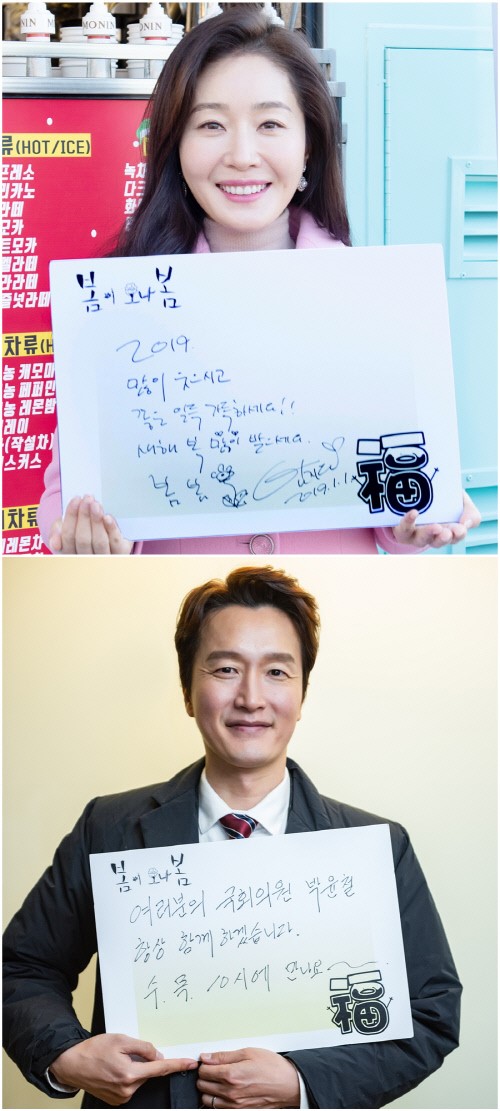 MONIN
MONIN
류(HOT/ICE)
녹차
다크
화
프레소
리카노
라떼
모카
트모카
멜라떼
라라떼
즐넛라떼
차류(H
농 캐모마
농 페퍼민
농 레몬밤
레이
(작설차)
스커스
차류
레몬차
봄이 오나 봄
2019.
많이 웃으시고
가득하세요!!
새해 복 많이 받으세요.
봄 봄
2019.1.1
福
봄이 오나 봄
여러분의 국회의원 박윤철
항상 함께 하겠습니다.
수. 목. 10시에 만나요~
福